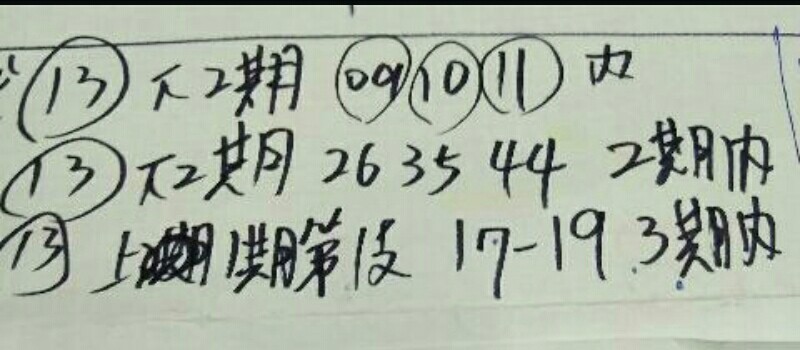 13 下2期 09 10 11 内
13 下2期 26 35 44 2期内
13 上 1期第 17-19 3期内